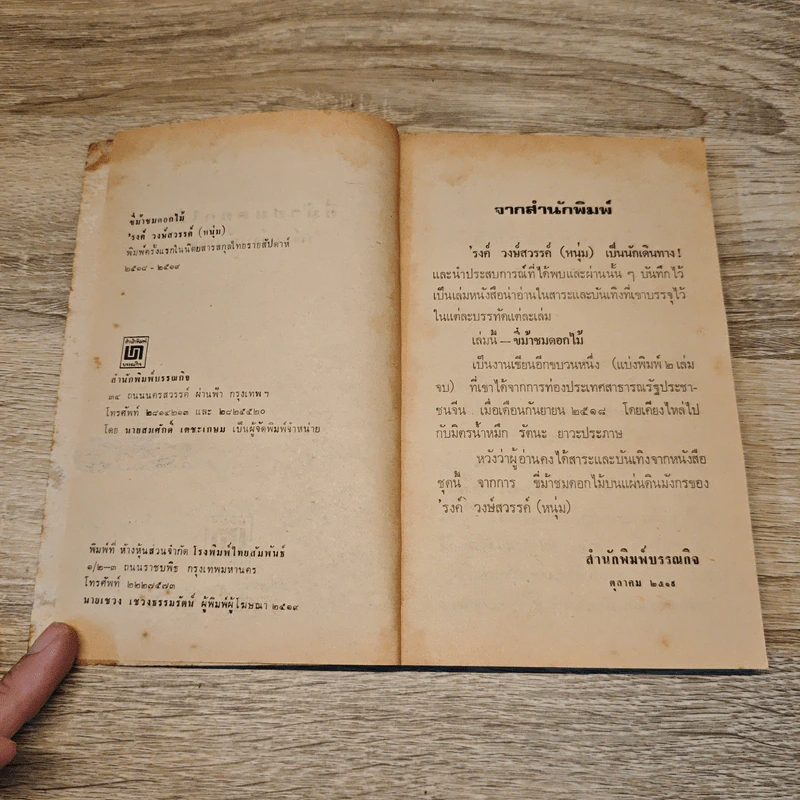 ขี่ม้าชมดอกไม้
'รงค์ วงษ์สวรรค์ (หนุ่ม)
พิมพ์ครั้งแรกในนิตยสารสกุลไทยรายสัปดาห์
๒๕๑๘ - ๒๕๑๙
สำนักพิมพ์
บรรณกิจ
สำนักพิมพ์บรรณกิจ
๓๔ ถนนนครสวรรค์ ผ่านฟ้า กรุงเทพฯ
โทรศัพท์ ๒๘๑๔๒๑๓ และ ๒๘๒๕๕๒๐
โดย นายสมศักดิ์ เตชะเกษม เป็นผู้จัดพิมพ์จำหน่าย
พิมพ์ที่ ห้างหุ้นส่วนจำกัด โรงพิมพ์ไทยสัมพันธ์
๑/๒-๓ ถนนราชบพิธ กรุงเทพมหานคร
โทรศัพท์ ๒๒๒๗๕๗๓
นายเชวง เชวงธรรมรัตน์ ผู้พิมพ์ผู้โฆษณา ๒๕๑๙
จากสำนักพิมพ์
'รงค์ วงษ์สวรรค์ (หนุ่ม) เป็นนักเดินทาง!
และนำประสบการณ์ที่ได้พบและผ่านนั้น ๆ บันทึกไว้
เป็นเล่มหนังสือน่าอ่านในสาระและบันเทิงที่เขาบรรจุไว้
ในแต่ละบรรทัดแต่ละเล่ม
เล่มนี้ — ขี่ม้าชมดอกไม้
เป็นงานเขียนอีกขบวนหนึ่ง (แบ่งพิมพ์ ๒ เล่ม
จบ) ที่เขาได้จากการท่องประเทศสาธารณรัฐประชา-
ชนจีน เมื่อเดือนกันยายน ๒๕๑๘ โดยเคียงไหล่ไป
กับมิตรน้ำหมึก รัตนะ ยาวะประภาษ
หวังว่าผู้อ่านคงได้สาระและบันเทิงจากหนังสือ
ชุดนี้ จากการ ขี่ม้าชมดอกไม้บนแผ่นดินมังกรของ
'รงค์ วงษ์สวรรค์ (หนุ่ม)
สำนักพิมพ์บรรณกิจ
ตุลาคม ๒๕๑๙